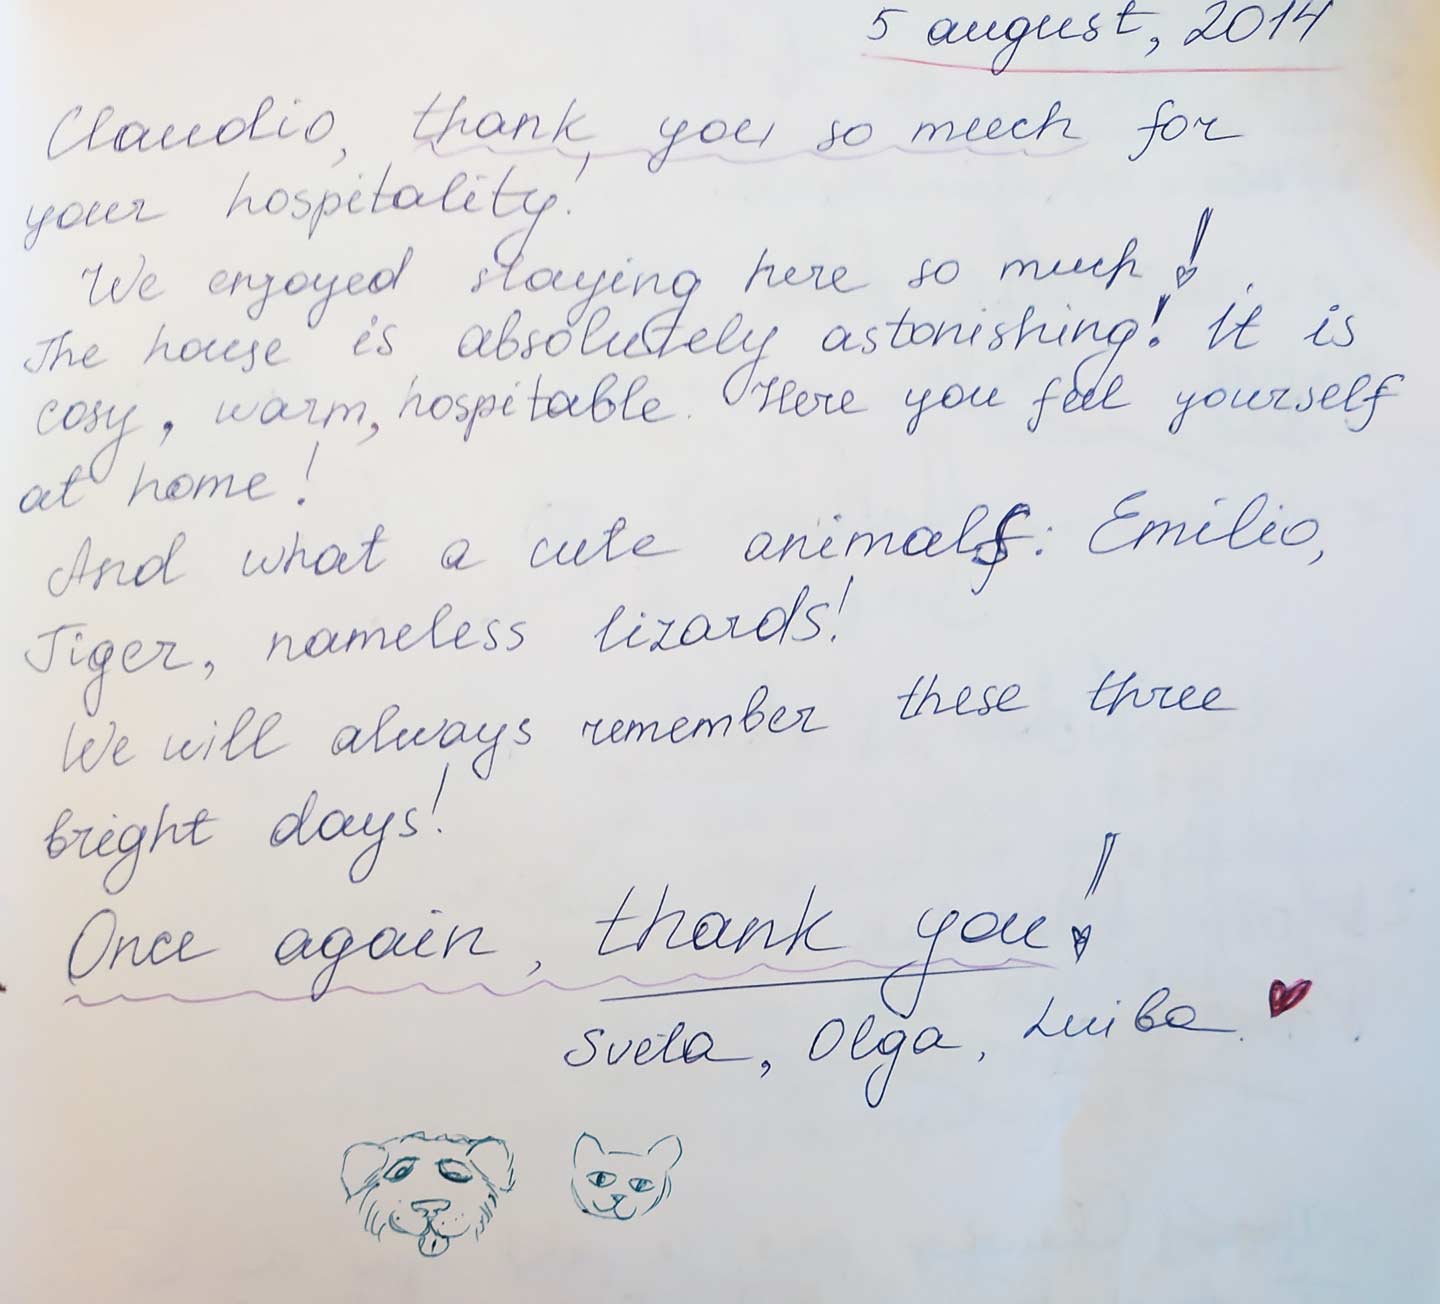 5 august, 2014
Claudio, thank you so much for
your hospitality!
We enjoyed staying here so much!
The house is absolutely astonishing! It is
cosy, warm, hospitable. Here you feel yourself
at home!
And what a cute animals: Emilio,
Tiger, nameless lizards!
We will always remember these three
bright days!
Once again, thank you!
Sveta, Olga, Luiba